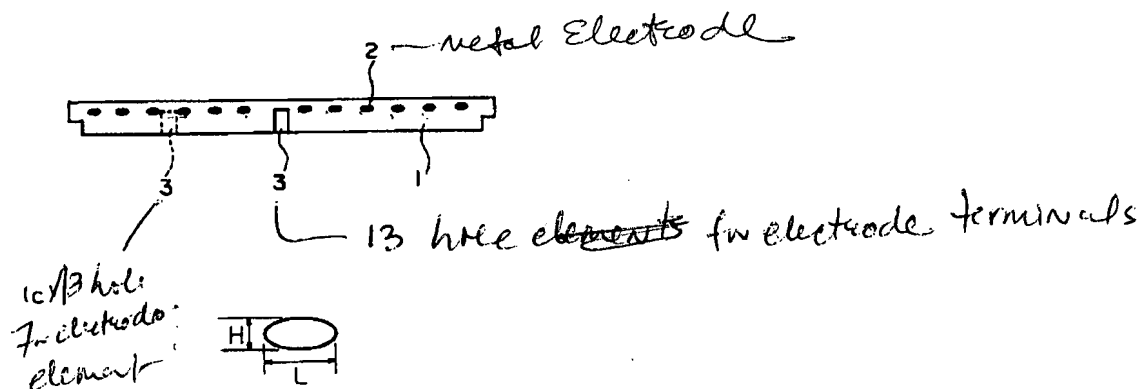 2 - metal Electrode
3
3
1
13 hole elements for electrode terminals
hole
electrode
element
H
L